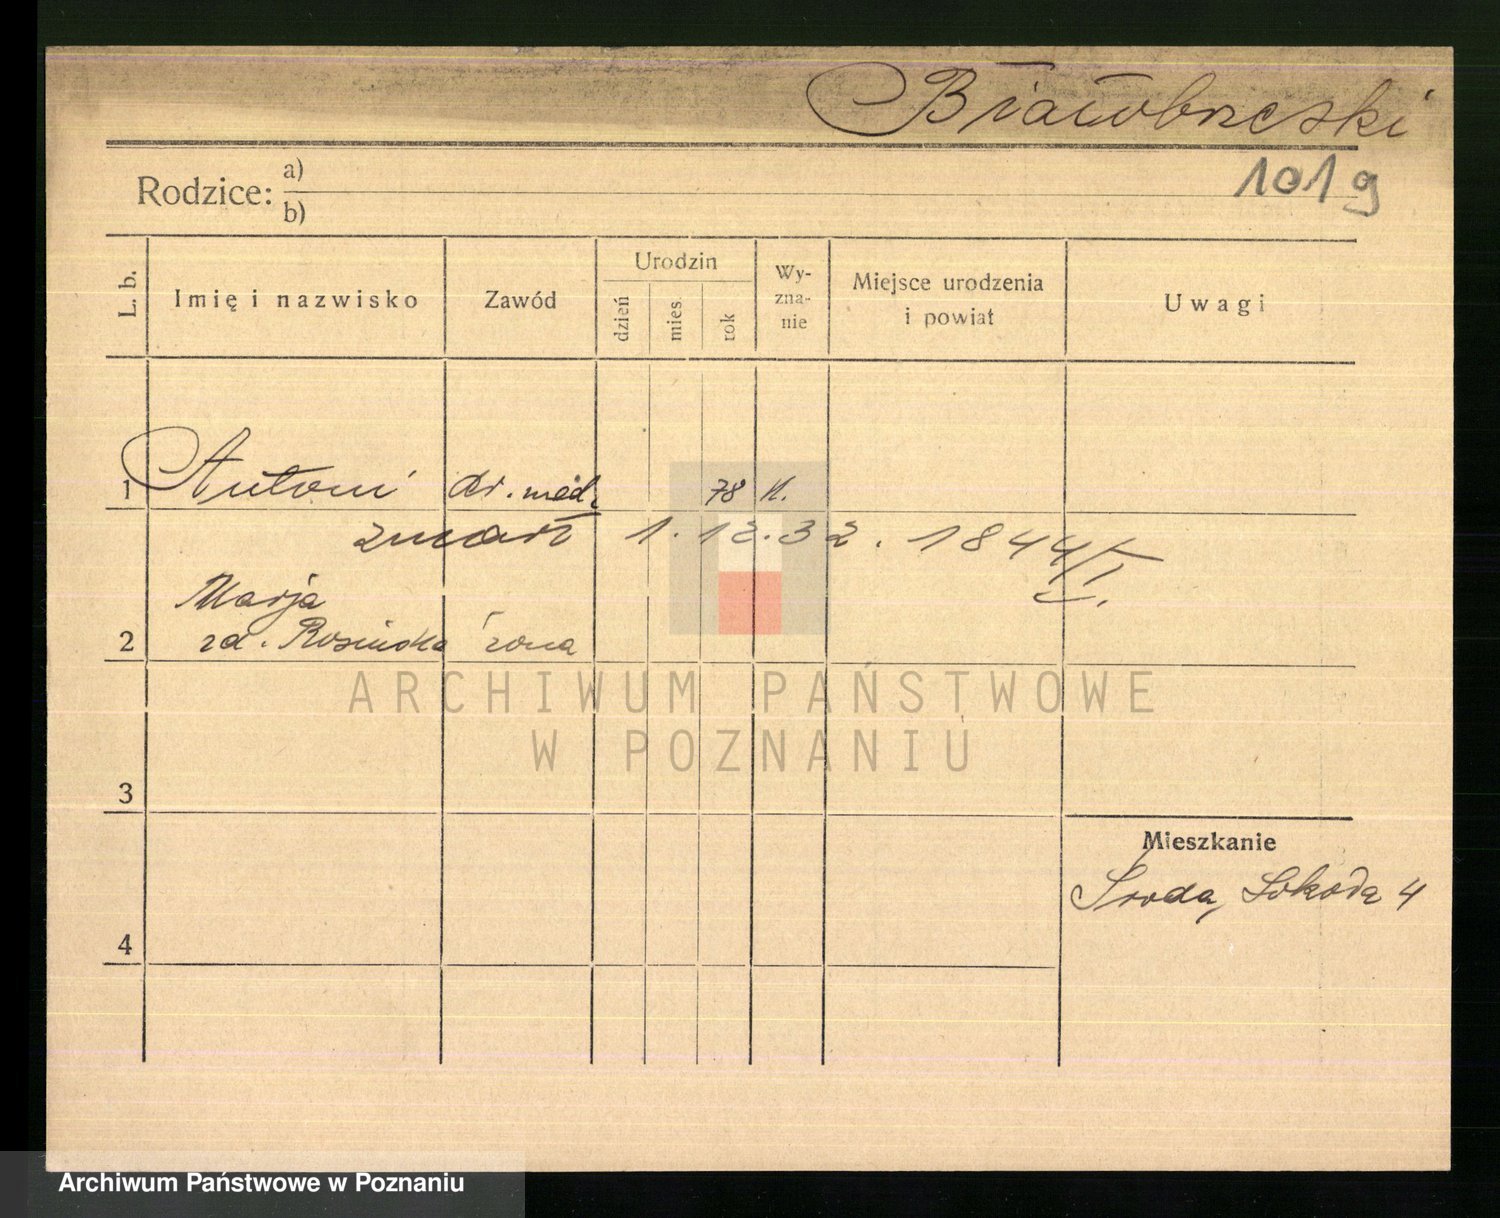 Białobrzeski
Rodzice: a)
b)
101 g
L. b.
Imię i nazwisko
Zawód
Urodzin
dzień
mies
rok
Wy-
zna-
nie
Miejsce urodzenia
i powiat
Uwagi
1 Antoni dr. med. 78 k.
zmarł 1.12.32. 1844/I.
Marja
2 zd. Rosińska żona
ARCHIWUM PAŃSTWOWE
W POZNANIU
3
Mieszkanie
Środa, 4
4
Archiwum Państwowe w Poznaniu